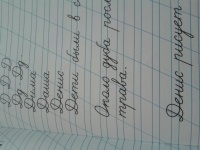 Д Д Д
Ду Ду
Дима
Даша
Денис
Дети были в с
Около дуба рос
трава.
Денис рисует